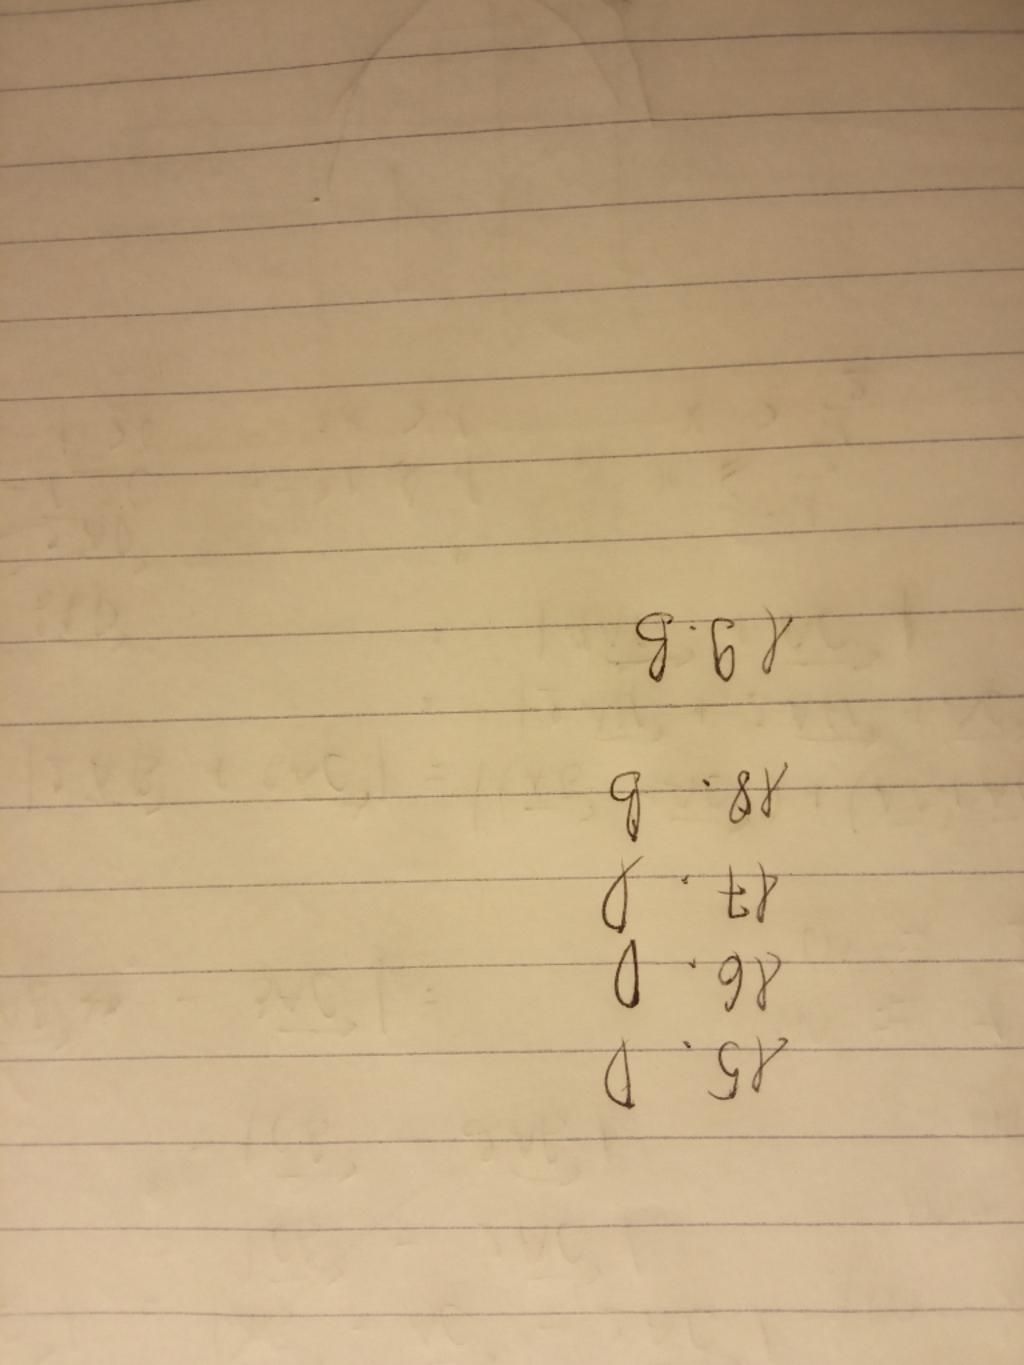 15. D
16. D
17. D
18. B
19. B